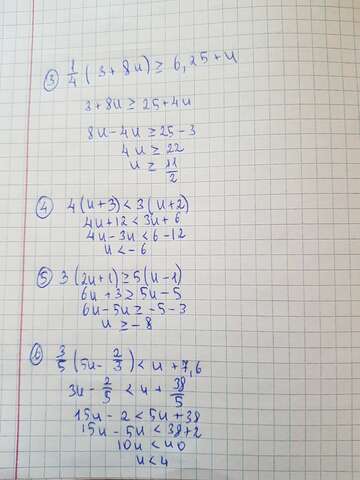 ③ 1/4 (3+8u) ≥ 6,25+u
3+8u ≥ 25+4u
8u-4u ≥ 25-3
4u ≥ 22
u ≥ 11/2
④ 4(u+3) < 3(u+2)
4u+12 < 3u+6
4u-3u < 6-12
u < -6
⑤ 3(2u+1) ≥ 5(u-1)
6u+3 ≥ 5u-5
6u-5u ≥ -5-3
u ≥ -8
⑥ 3/5 (5u - 2/3) < u+7,6
3u - 2/5 < u + 38/5
15u-2 < 5u+38
15u-5u < 38+2
10u < 40
u < 4